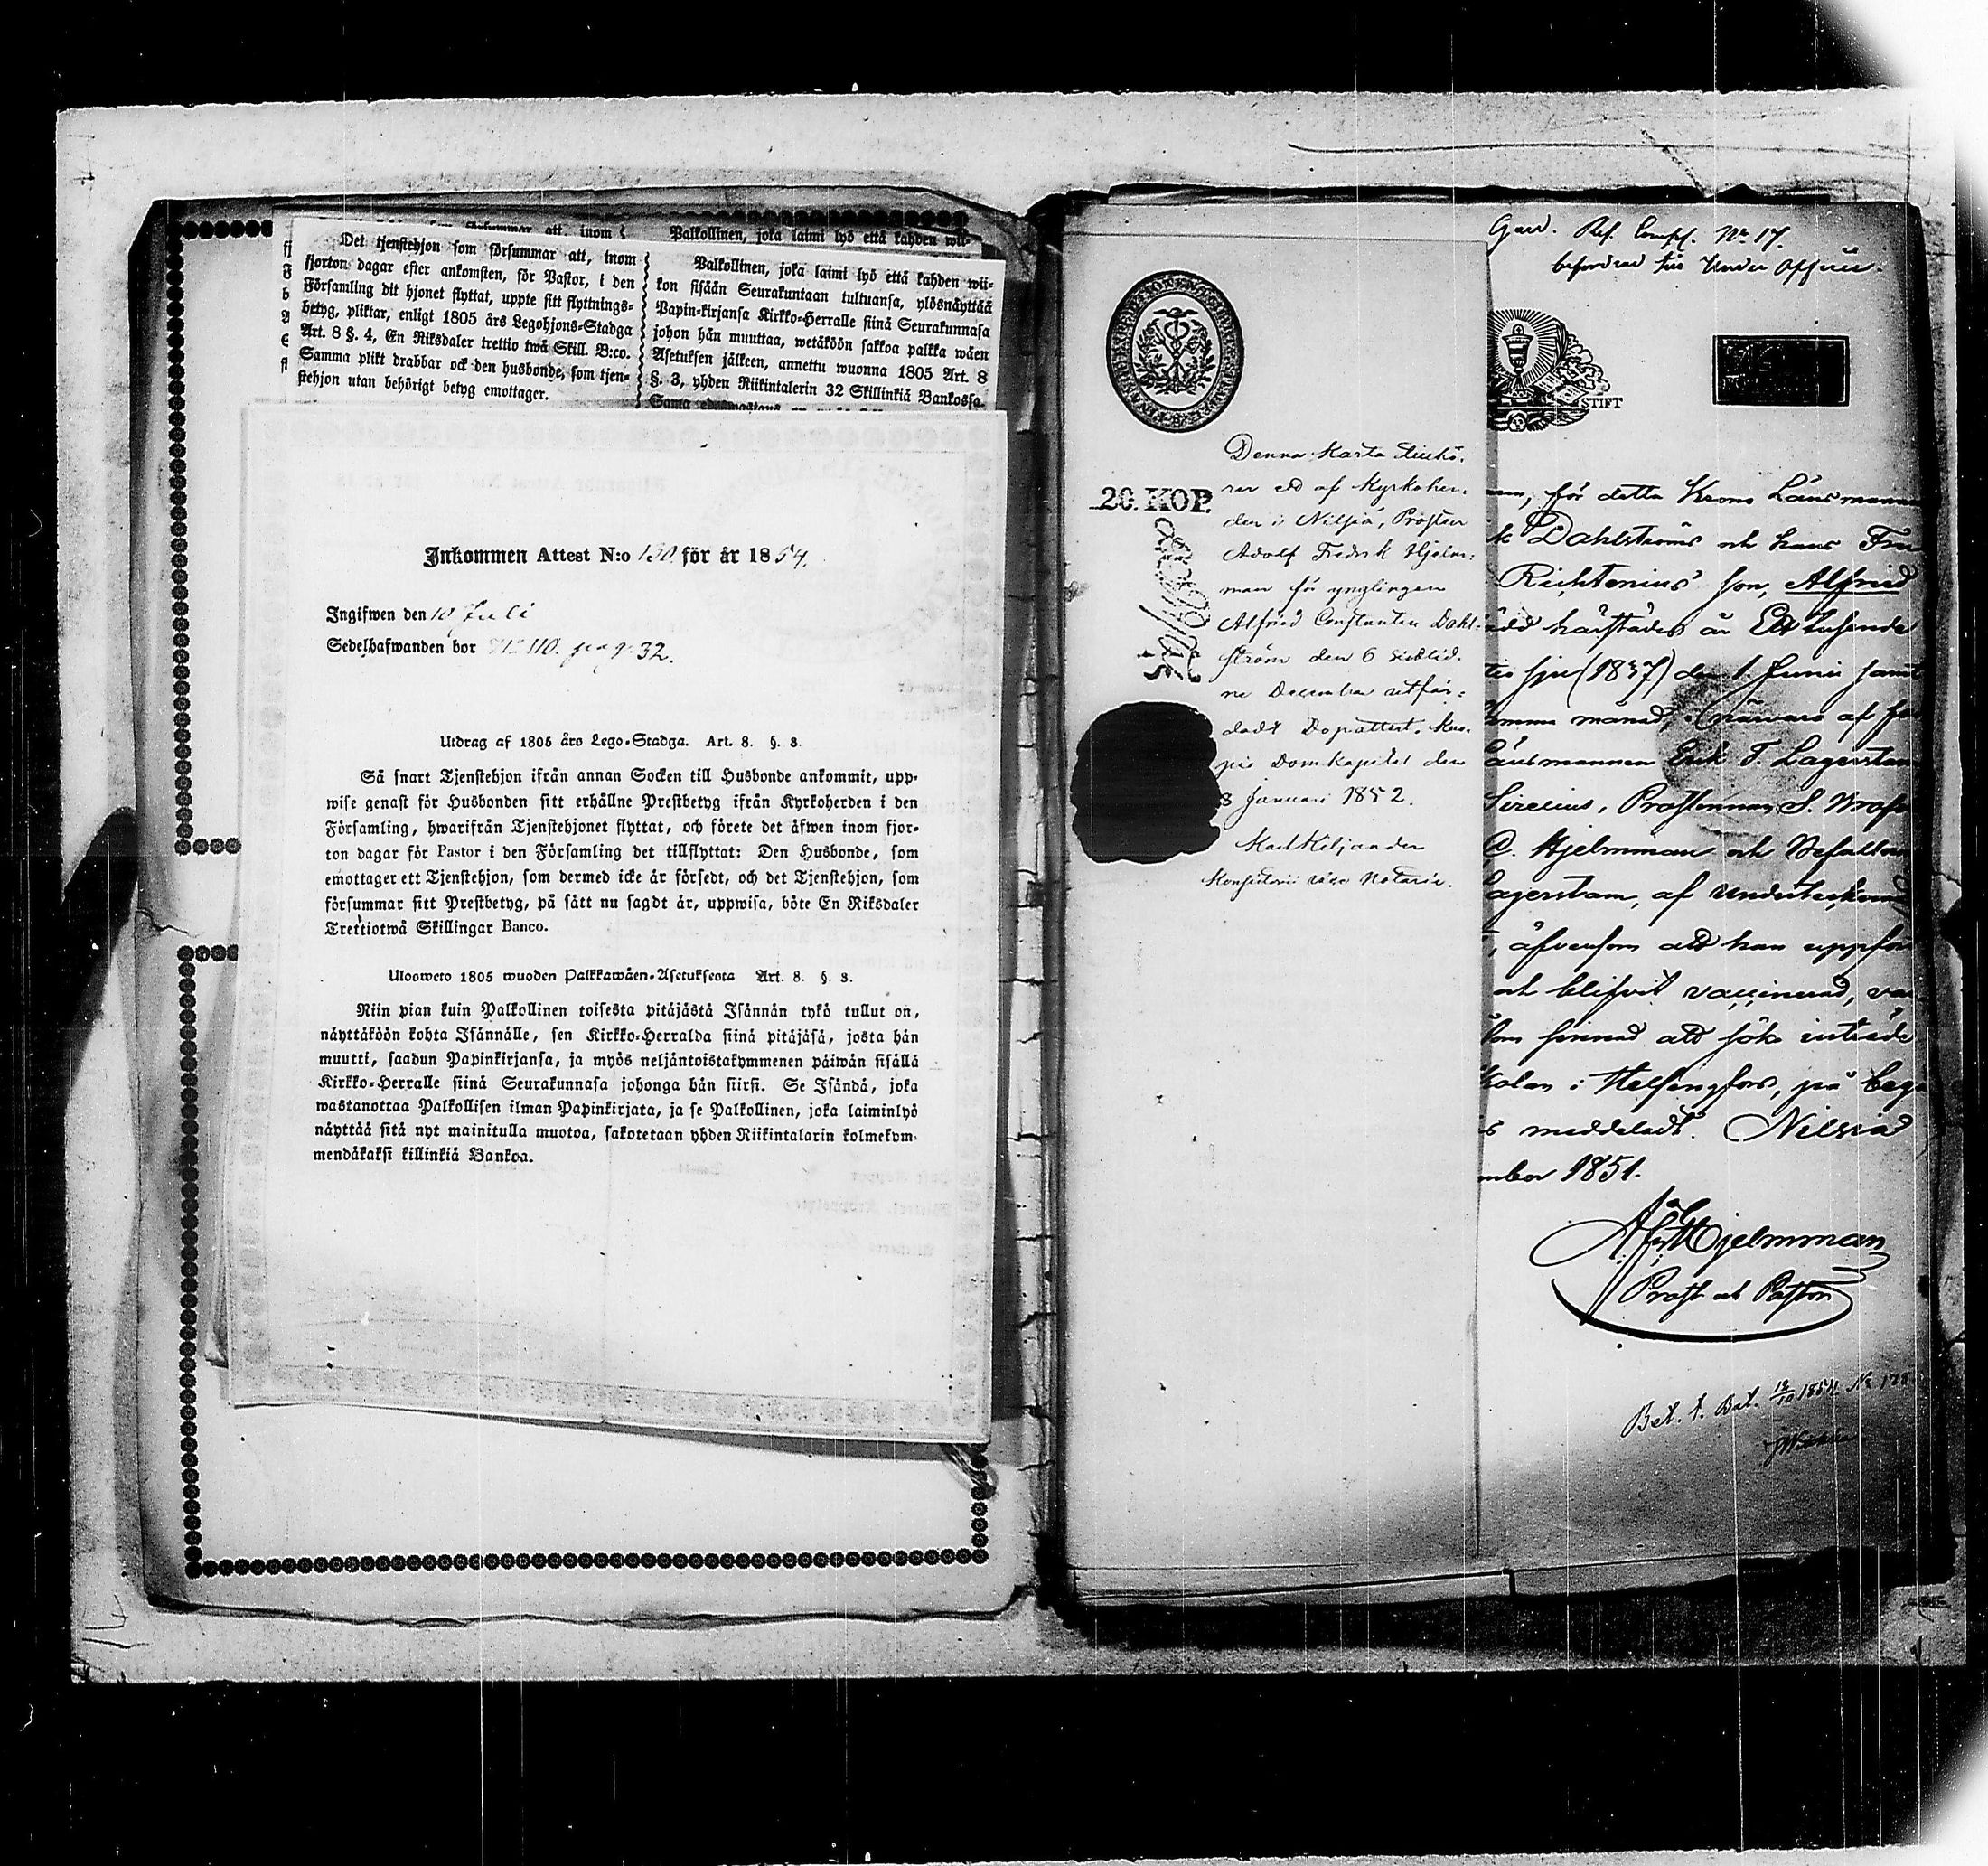 Det tjenstehjon som försummar att, inom
fjorton dagar efter ankomsten, för Pastor, i den
Församling dit hjonet flyttat, uppte sitt flyttnings-
betyg, pliktar, enligt 1805 års Legohjons-Stadga
Art. 8 §. 4, En Riksdaler trettio twå Skill. B:co.
Samma plikt drabbar ock den husbonde, som tjen-
stehjon utan behörigt betyg emottager.
Palkollinen, joka laimi lyö että kahden wii-
Palkollinen, joka laimi lyö että kahden wii-
kon sisään Seurakuntaan tultuansa, ylösnäyttää
Papin-kirjansa Kirkko-Herralle siinä Seurakunnasa
johon hän muuttaa, wetäköön sakkoa palkka wäen
Asetuksen jälkeen, annettu wuonna 1805 Art. 8
§. 3, yhden Riikintalerin 32 Skillinkiä Bankossa.
Inkommen Attest N:o 130 för år 1854.
Ingifwen den 10 Juli
Sedelhafwanden bor N:o 110. pag. 32.
Utdrag af 1805 års Lego-Stadga. Art. 8. §. 3.
Så snart Tjenstehjon ifrån annan Socken till Husbonde ankommit, upp-
wise genast för Husbonden sitt erhållne Prestbetyg ifrån Kyrkoherden i den
Församling, hwarifrån Tjenstehjonet flyttat, och förete det äfwen inom fjor-
ton dagar för Pastor i den Församling det tillflyttat: Den Husbonde, som
emottager ett Tjenstehjon, som dermed icke är försedt, och det Tjenstehjon, som
försummar sitt Prestbetyg, på sätt nu sagdt är, uppwisa, böte En Riksdaler
Trettiotwå Skillingar Banco.
Ulosweto 1805 wuoden Palkkawäen-Asetuksesta Art. 8. §. 3.
Niin pian kuin Palkollinen toisesta pitäjästä Isännän tykö tullut on,
näyttäköön kohta Isännälle, sen Kirkko-Herralda siinä pitäjäsä, josta hän
muutti, saadun Papinkirjansa, ja myös neljäntoistakymmenen päiwän sisällä
Kirkko-Herralle siinä Seurakunnasa johonga hän siirsi. Se Isändä, joka
wastanottaa Palkollisen ilman Papinkirjata, ja se Palkollinen, joka laiminlyö
näyttää sitä nyt mainitulla muotoa, sakotetaan yhden Riikintalarin kolmekym-
mendäkaksi killinkiä Bankoa.
20. KOP.
Denna Karta tillhö-
rer ett af Kyrkoher-
den i Nilsiä, Prosten
Adolf Fredrik Hjelm-
man för ynglingen
Alfried Constantin Dahl-
ström den 6 sistlid-
ne December utfär-
dadt Dopattest. Kuo-
pio Domkapitel den
8 Januari 1852.
Karl Kiljander
Consistorii vice Notarie.
N:o 17.
befordrad till Under Officer.
STIFT
för detta Krono Länsmannen
Dahlströms och hans Fru
Richtenius' son, Alfried
född härstädes år Ett tusende
sju (1837) den 1. Junii samt
samma månad, (närvaro af
Länsmannen Erik T. Lagerstam
Sirelius, Prostinnan S.
C. Hjelmman och Befallnings
Lagerstam, af undertecknad
, äfvensom att han uppförd
och blifvit vaccinerad,
sinnad att söka inträde
Skolan i Helsingfors, på begä
meddeladt. Nilsiä
mber 1851.
A. F. Hjelmman
Prost och Pastor
Bet. t. Bat. 12/10 1854 N:o 178